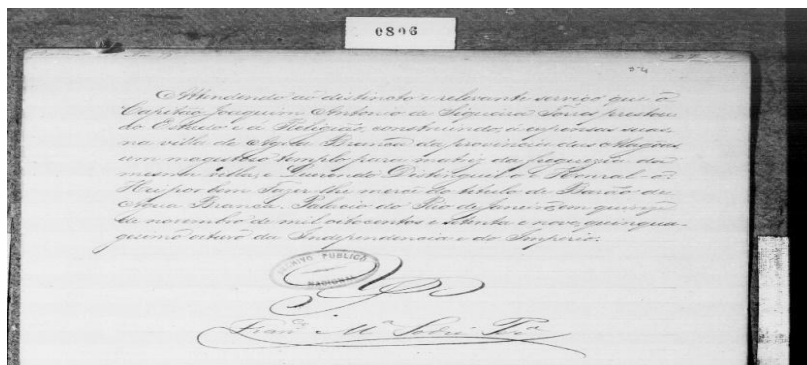 0896
Attendendo ao distincto e relevante serviço que o
Capitão Joaquim Antonio de Siqueira Torres prestou
ao Estado e á Religião, construindo, á expensas suas
na villa de Agua Branca da provincia das Alagôas
um magestoso templo para matriz da freguezia da
mesma villa, e Querendo Distinguil-o e Honral-o:
Hei por bem Fazer-lhe mercê do titulo de Barão de
Agua Branca. Palacio do Rio de Janeiro, em quinze
de novembro de mil oitocentos e setenta e nove, quinqua-
gesimo oitavo da Independencia e do Imperio.
ARCHIVO PUBLICO
NACIONAL
Fran.co M.a Sodré P.a